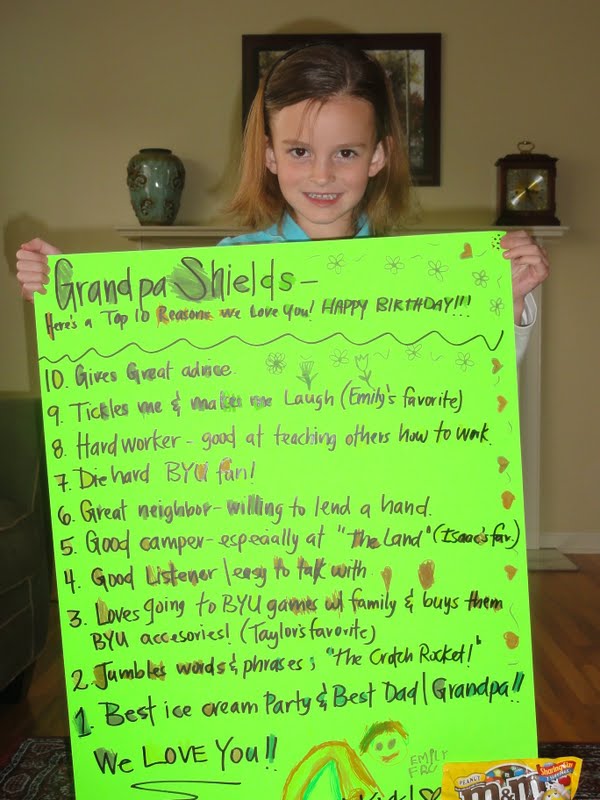 Grandpa Shields—
Here's a Top 10 Reasons we Love You! HAPPY BIRTHDAY!!!
10. Gives Great advice.
9. Tickles me & makes me Laugh (Emily's favorite)
8. Hard worker - good at teaching others how to work.
7. Die hard BYU fan!
6. Great neighbor - willing to lend a hand.
5. Good camper - especially at "The Land" (Isaac's fav.)
4. Good Listener / easy to talk with
3. Loves going to BYU games w/ family & buys them
BYU accesories! (Taylor's favorite)
2. Jumbles words & phrases; "The Crotch Rocket!"
1. Best ice cream Party & Best Dad / Grandpa!!
We LOVE YOU!!
EMILY
PEANUT
Sharing Size
m&m's